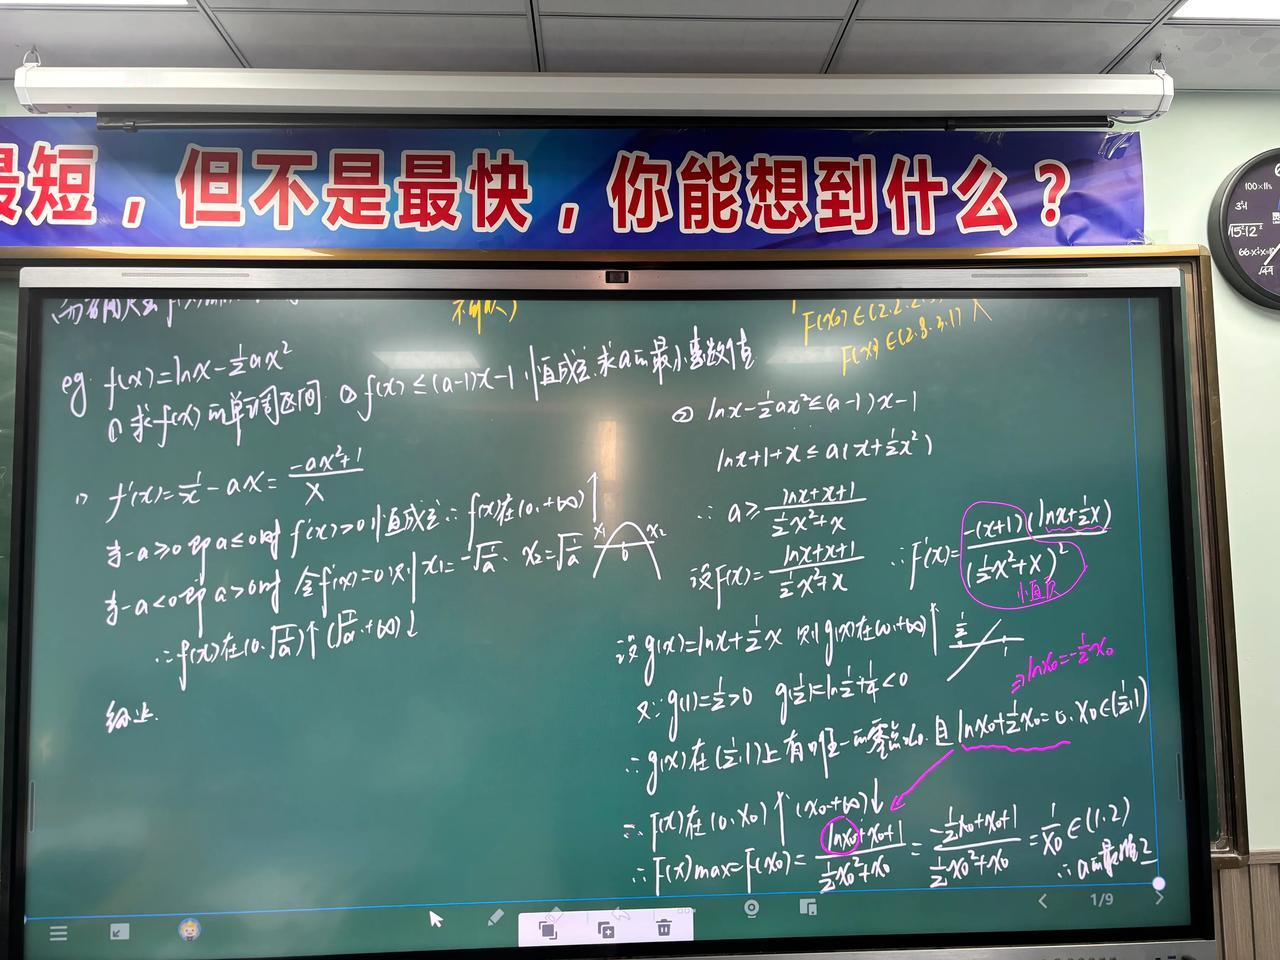 最短，但不是最快，你能想到什么？
F(x₀)∈(2.2.
F(x₀)∈(2.8.3.1) X
eg. f(x)=lnx-½ax²
① 求f(x)的单调区间 ② f(x)≤(a-1)x-1 恒成立.求a的最小整数值
1) f'(x)=1/x-ax=(-ax²+1)/x
当-a≥0即a≤0时 f'(x)>0恒成立∴f(x)在(0.+∞)↑
当-a<0即a>0时 令f'(x)=0则x₁=-√(1/a)、x₂=√(1/a)
x₁ 0 x₂
∴f(x)在(0.√(1/a))↑(√(1/a).+∞)↓
综上.
② lnx-½ax²≤(a-1)x-1
lnx+1+x≤a(x+½x²)
∴a≥(lnx+x+1)/(½x²+x)
设F(x)=(lnx+x+1)/(½x²+x) ∴F'(x)=-(x+1)(lnx+½x)/(½x²+x)²
恒正
设g(x)=lnx+½x 则g(x)在(0.+∞)↑
½ 1
⇒lnx₀=-½x₀
又∵g(1)=½>0 g(½)=ln½+¼<0
∴g(x)在(½,1)上有唯一的零点x₀.且lnx₀+½x₀=0.x₀∈(½,1)
∴F(x)在(0.x₀)↑(x₀.+∞)↓
∴F(x)max=F(x₀)=(lnx₀+x₀+1)/(½x₀²+x₀)=(-½x₀+x₀+1)/(½x₀²+x₀)=1/x₀∈(1.2)
1/9
100×1½
15²12²
√49